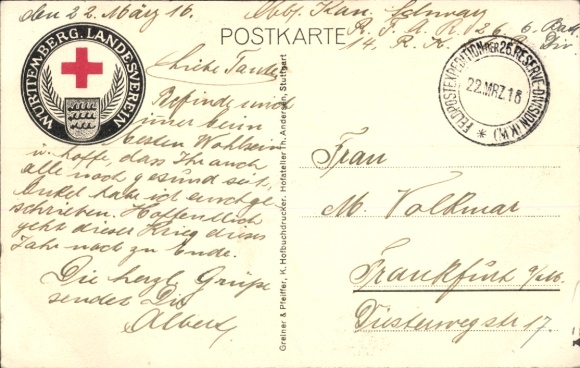 den 22. März 16.
Abs. Kan.
R. F. A. R. 26. 6. Batt.
14. R. K. Div
POSTKARTE
WÜRTTEMBERG. LANDESVEREIN
FELDPOSTEXPEDITION DER 26. RESERVE-DIVISION (K.W.)
22. MRZ 16
Liebe Tante
Befinde mich
imer beim
besten Wohlsein
u. hoffe, das Ihr auch
alle noch gesund seit,
Onkel habe ich auch ge
schrieben. Hoffendlich
geht dieser Krieg dieses
Jahr noch zu Ende.
Die herzl. Grüße
sendet Dir
Albert
Greiner & Pfeiffer, K. Hofbuchdrucker, Hofsteller Th. Andersen, Stuttgart
Frau
M. Volkmar
Frankfurt
Diesterwegstr 17.